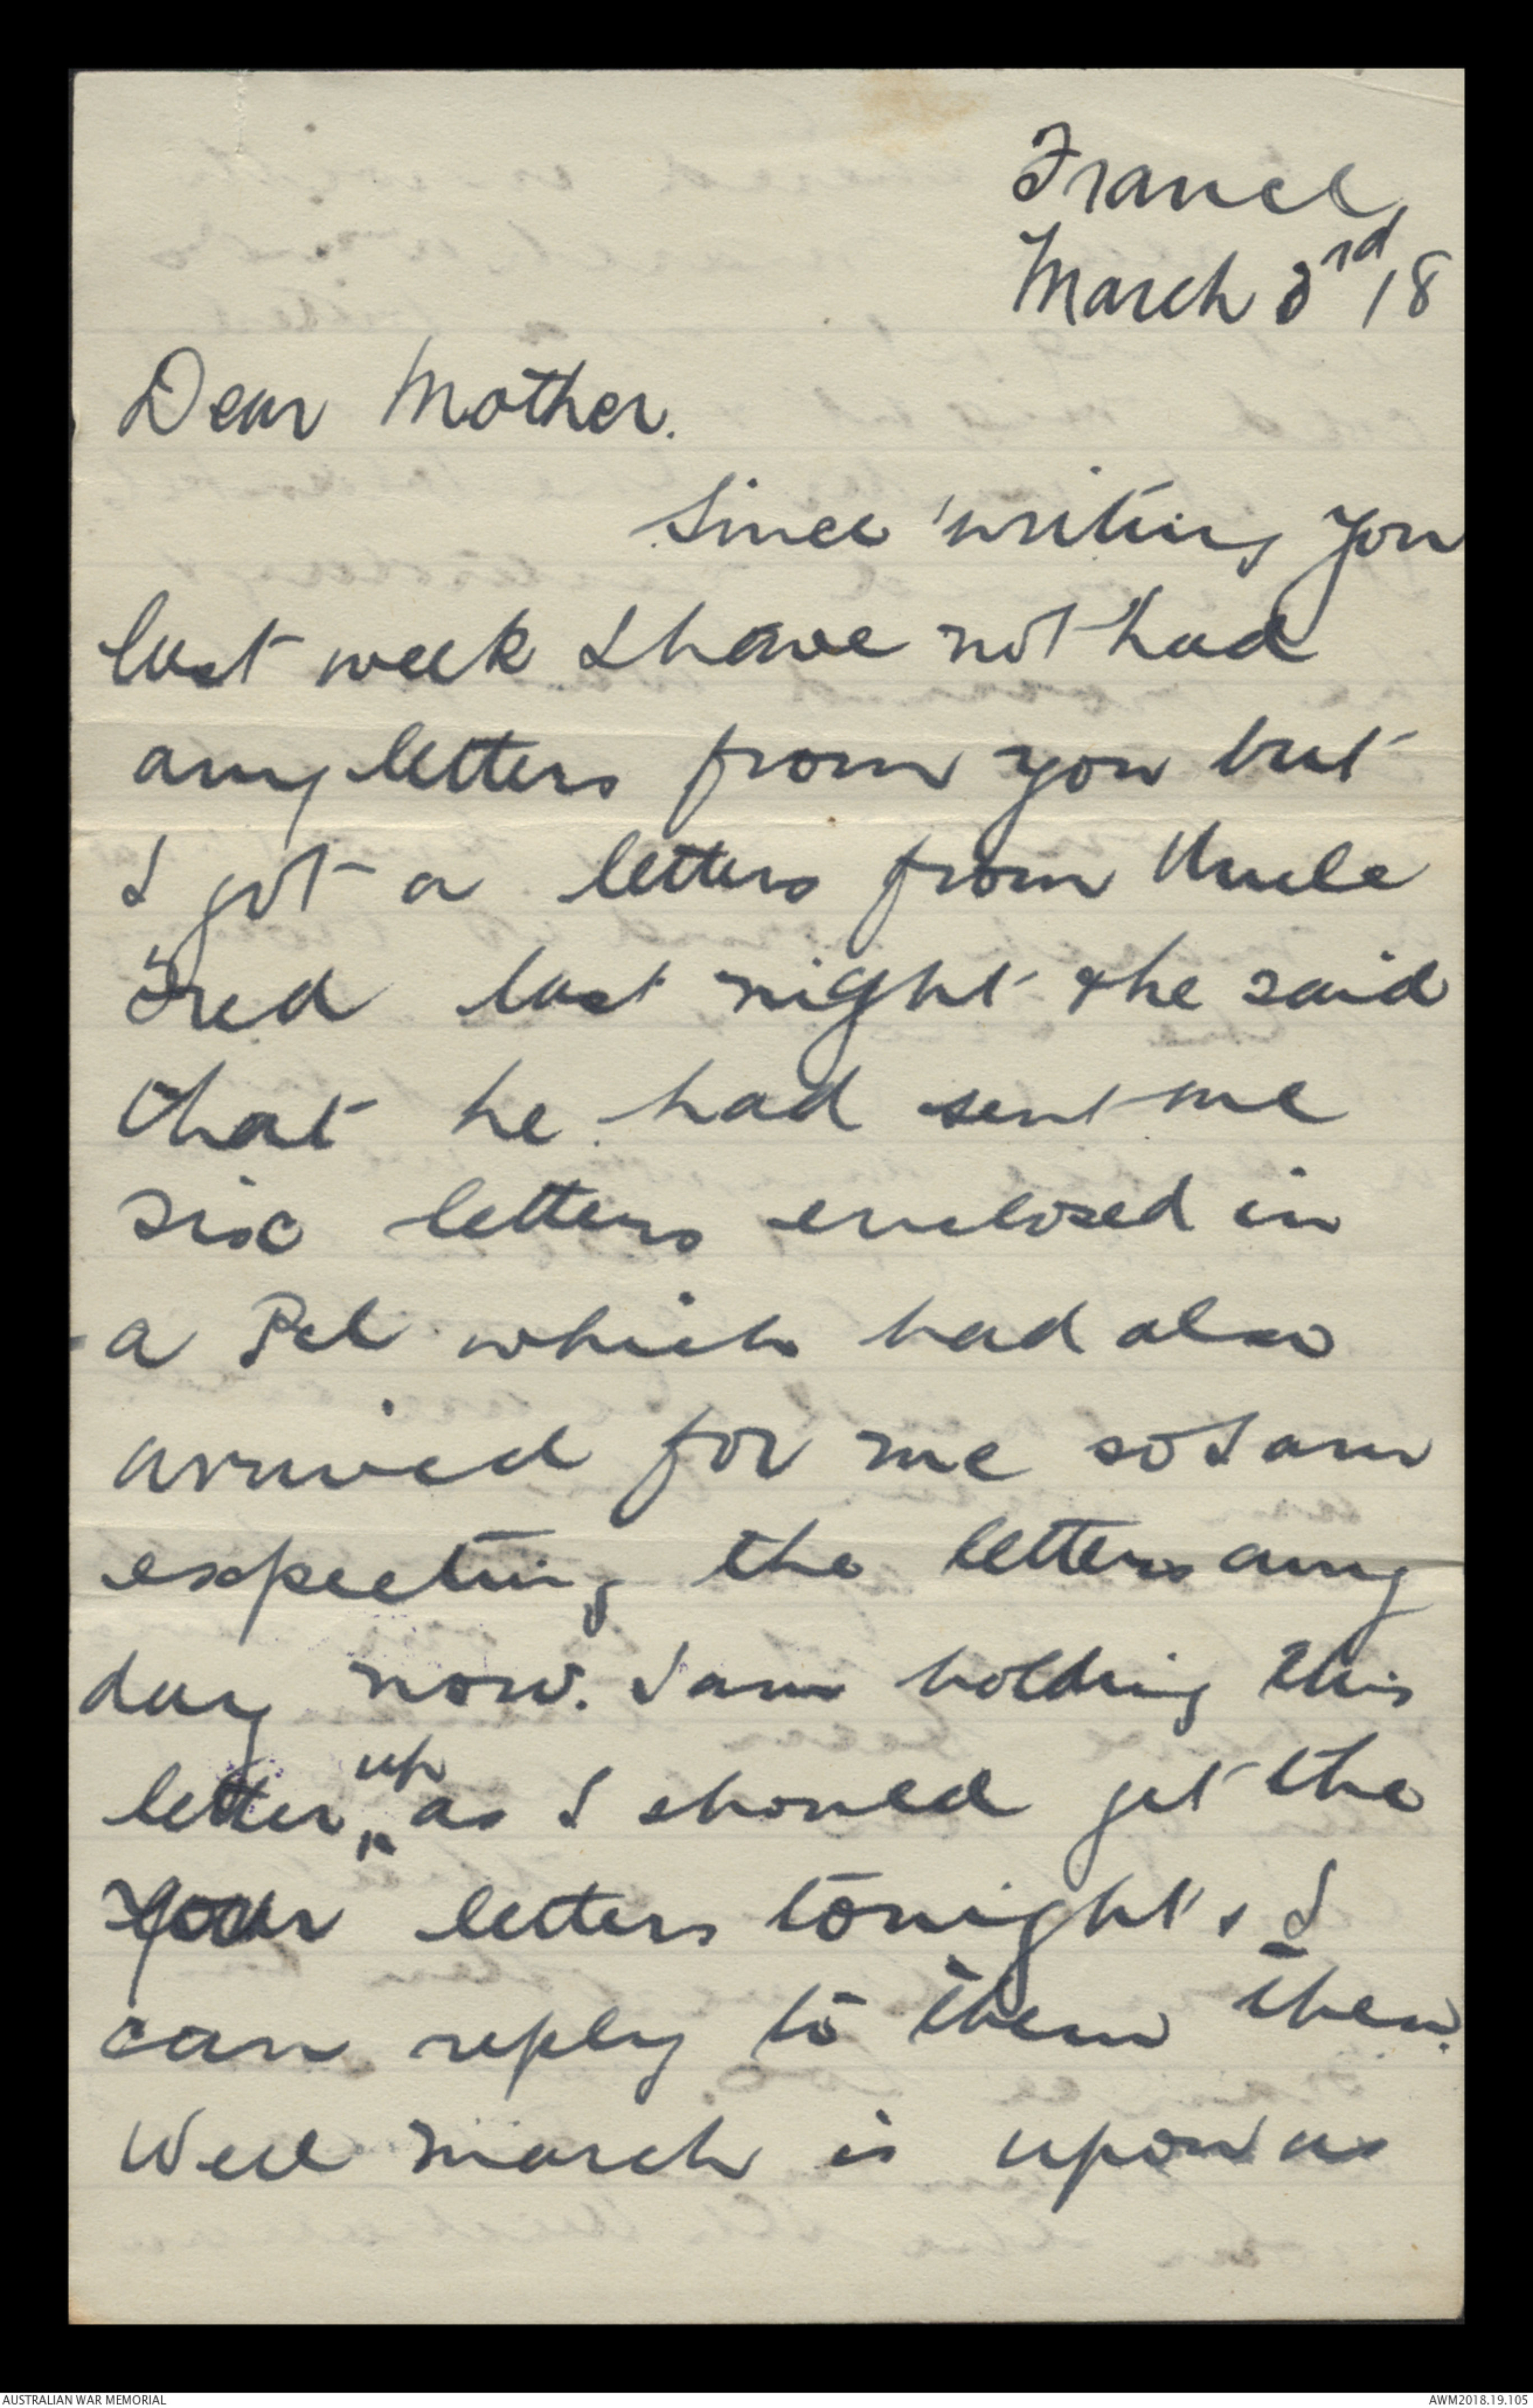 France,
March 3rd/18
Dear Mother.
Since writing you
last week I have not had
any letters from you but
I got a letters from Uncle
Fred last night & he said
that he had sent me
six letters enclosed in
a Pcl which had also
arrived for me so I am
expecting the letters any
day now. I am holding this
letter up as I should get the
your letters tonight & I
can reply to them then.
Well march is upon us
AUSTRALIAN WAR MEMORIAL
AWM2018.19.105